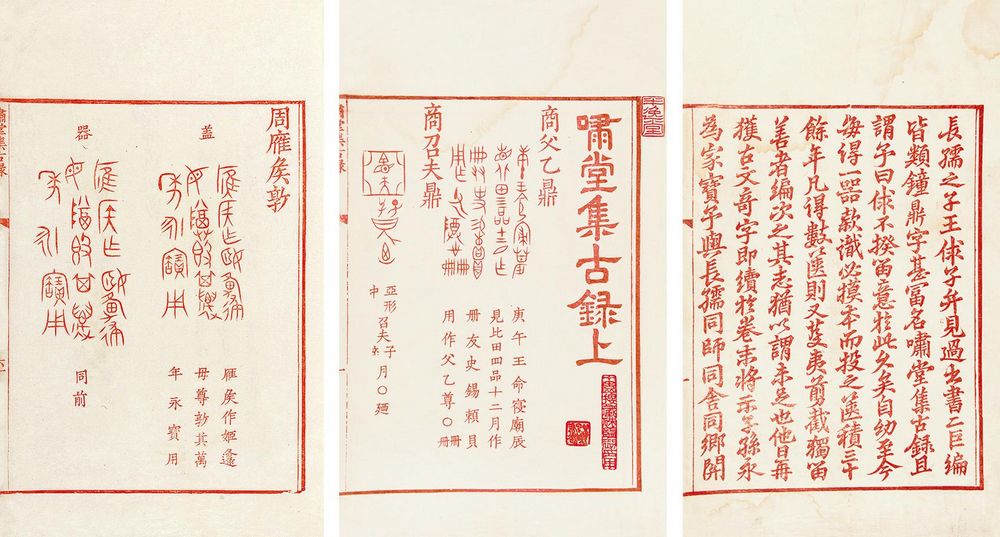 長孺之子王俅子弁見過出書二巨編
皆類鐘鼎字甚富名嘯堂集古錄且
謂予曰俅不揆留意於此久矣自幼至今
每得一器款識必摸本而投之篋積三十
餘年凡得數篋則又芟夷剪截獨留
善者編次之其志猶以謂未足也他日再
獲古文奇字即續於卷末將示子孫永
為家寶予與長孺同師同舍同鄉關
嘯堂集古錄上
商父乙鼎
庚午王命寢廟辰
見比田四品十二月作
冊友史錫賴貝
用作父乙尊〇冊冊
商召夫鼎
亞形召夫子
中 月〇
嘯堂集古錄
周雁矦敦
蓋
雁矦作姬邍
毋尊敦其萬
年永寶用
器
同前
嘯堂集古錄